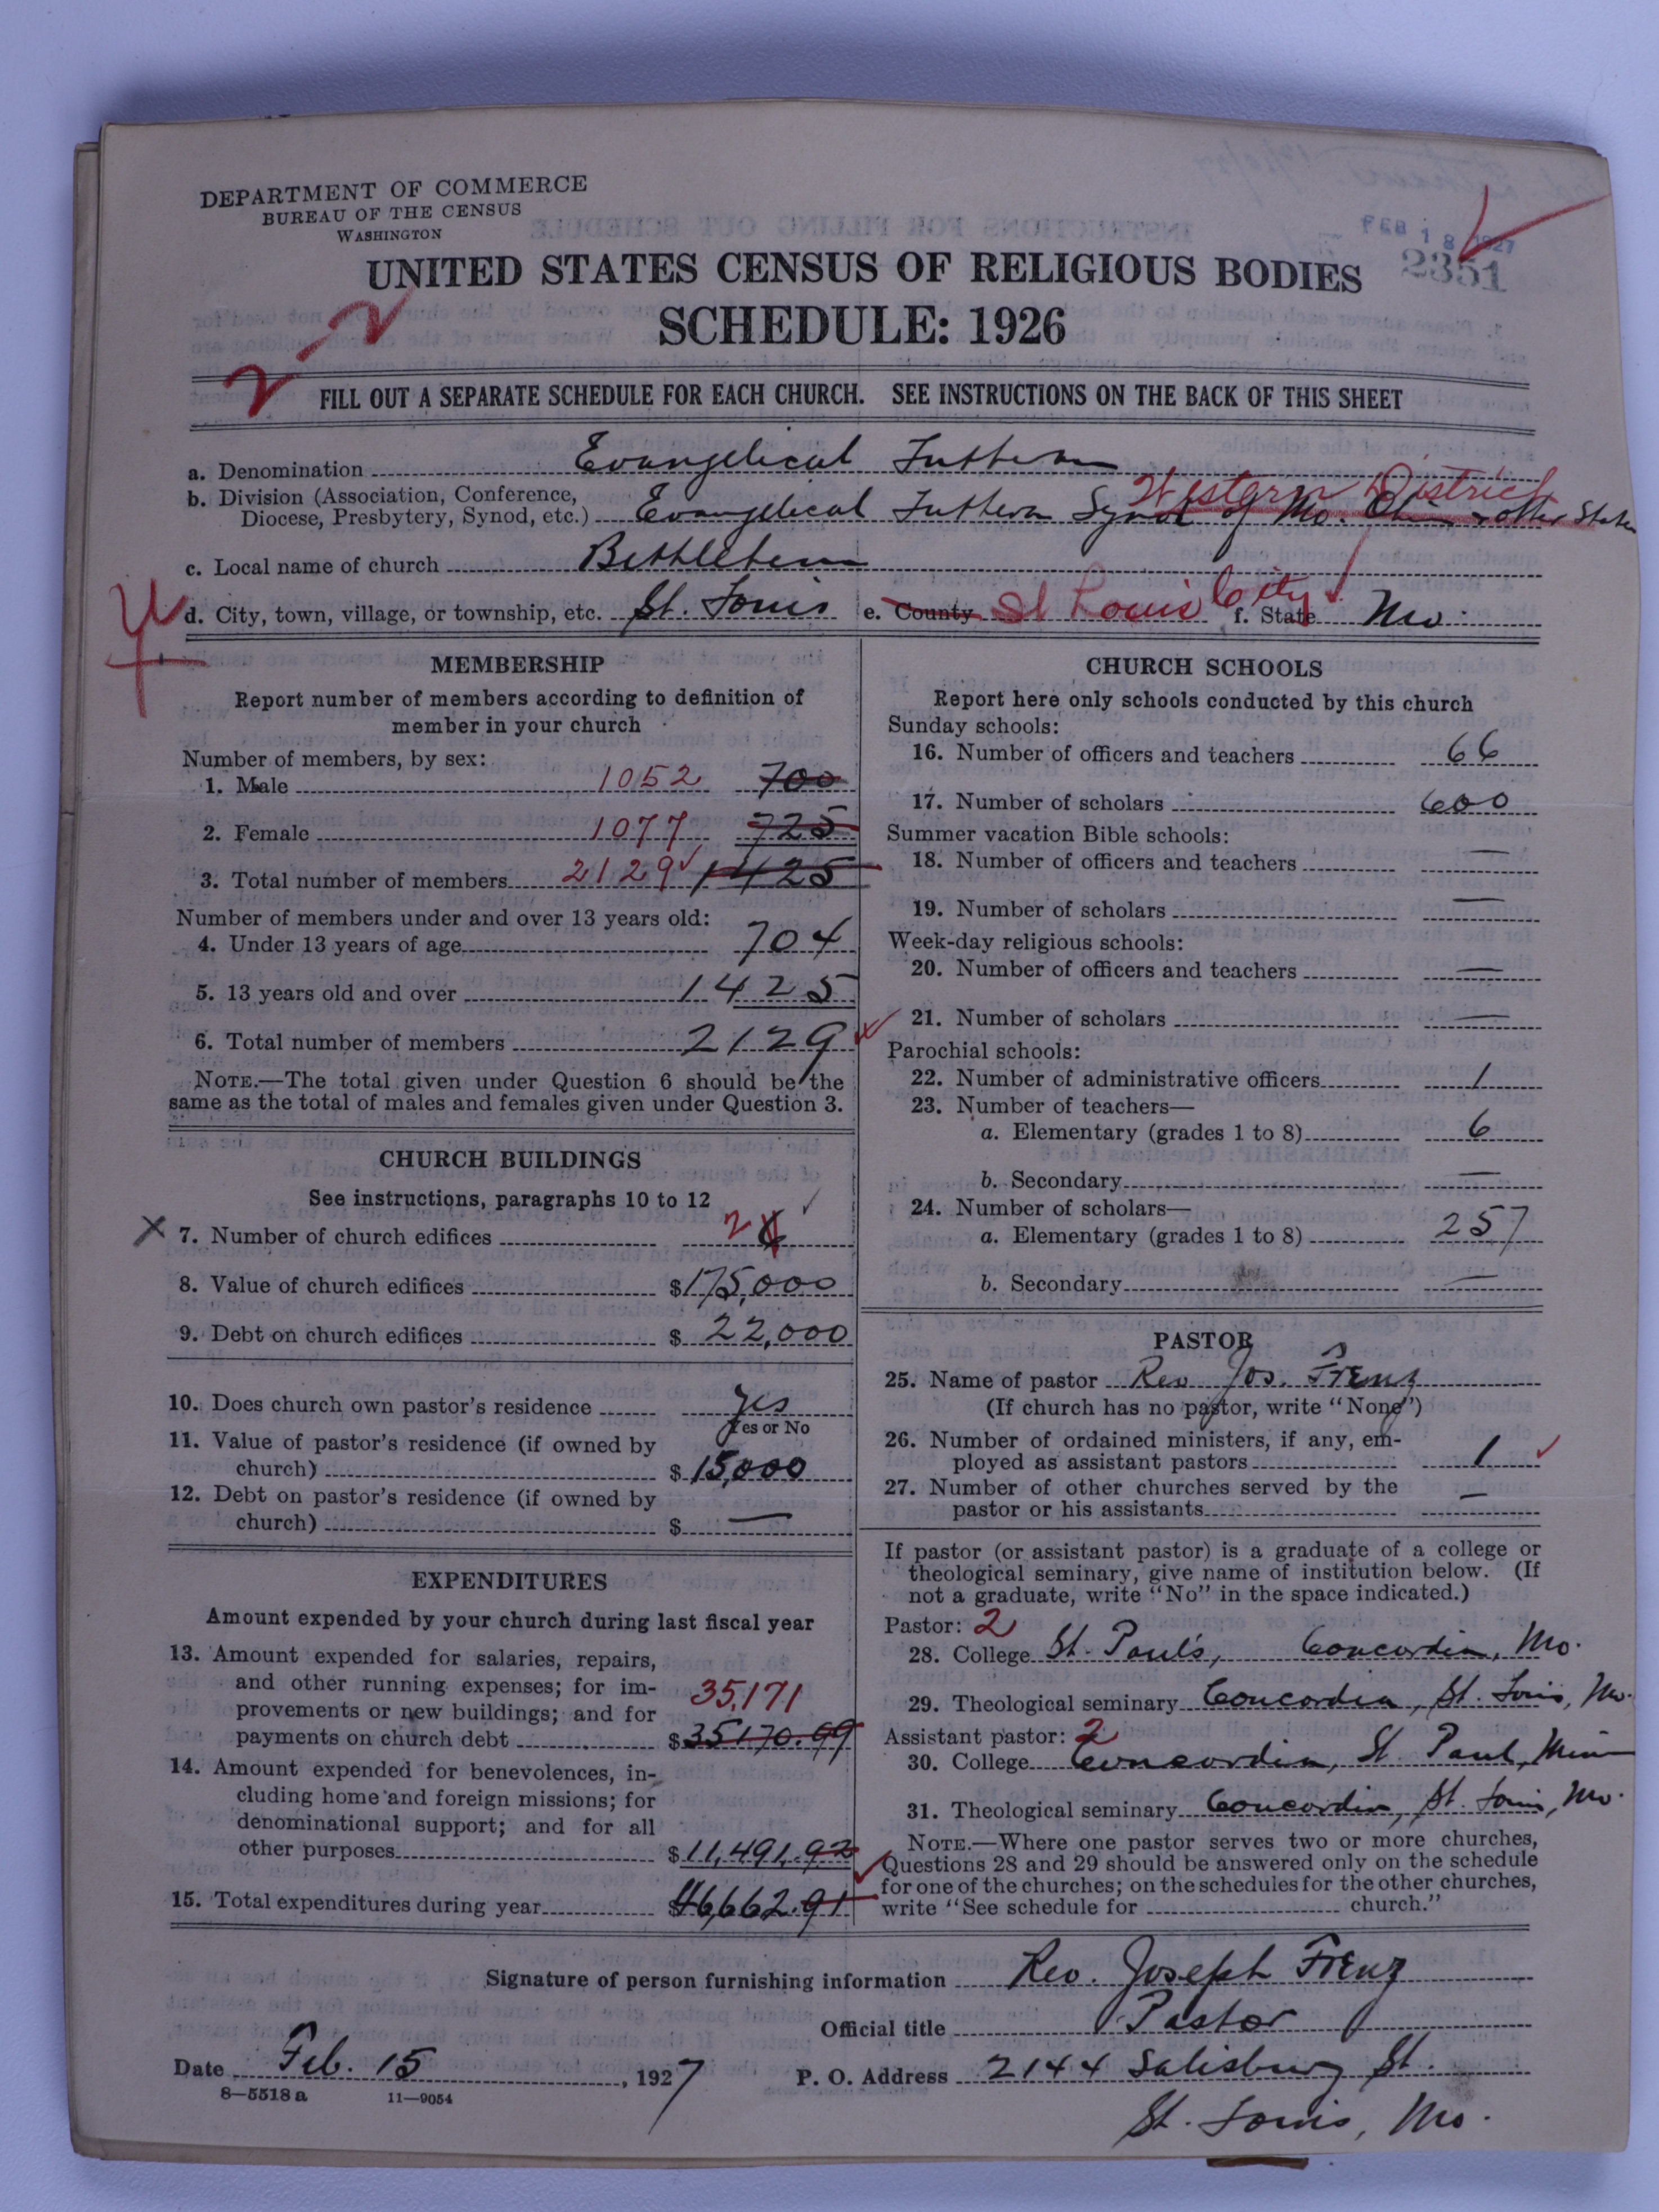 DEPARTMENT OF COMMERCE
BUREAU OF THE CENSUS
WASHINGTON
FEB 18 1927
2351
UNITED STATES CENSUS OF RELIGIOUS BODIES
SCHEDULE: 1926
2-2
FILL OUT A SEPARATE SCHEDULE FOR EACH CHURCH. SEE INSTRUCTIONS ON THE BACK OF THIS SHEET
a. Denomination Evangelical Lutheran
Western District
b. Division (Association, Conference,
Diocese, Presbytery, Synod, etc.) Evangelical Lutheran Synod of Mo. Ohio & other States
c. Local name of church Bethlehem
d. City, town, village, or township, etc. St. Louis e. County St Louis City f. State Mo.
MEMBERSHIP
Report number of members according to definition of
member in your church
Number of members, by sex:
1. Male 1052 700
2. Female 1077 725
3. Total number of members 2129 1425
Number of members under and over 13 years old:
4. Under 13 years of age 704
5. 13 years old and over 1425
6. Total number of members 2129
NOTE.—The total given under Question 6 should be the
same as the total of males and females given under Question 3.
CHURCH BUILDINGS
See instructions, paragraphs 10 to 12
X 7. Number of church edifices 2
8. Value of church edifices $175,000
9. Debt on church edifices $22,000
10. Does church own pastor's residence yes
Yes or No
11. Value of pastor's residence (if owned by
church) $15,000
12. Debt on pastor's residence (if owned by
church) $ —
EXPENDITURES
Amount expended by your church during last fiscal year
13. Amount expended for salaries, repairs,
and other running expenses; for im-
provements or new buildings; and for 35,171
payments on church debt $35170.99
14. Amount expended for benevolences, in-
cluding home and foreign missions; for
denominational support; and for all
other purposes $11,491.92
15. Total expenditures during year $46,662.91
CHURCH SCHOOLS
Report here only schools conducted by this church
Sunday schools:
16. Number of officers and teachers 66
17. Number of scholars 600
Summer vacation Bible schools:
18. Number of officers and teachers —
19. Number of scholars —
Week-day religious schools:
20. Number of officers and teachers —
21. Number of scholars —
Parochial schools:
22. Number of administrative officers 1
23. Number of teachers—
a. Elementary (grades 1 to 8) 6
b. Secondary —
24. Number of scholars—
a. Elementary (grades 1 to 8) 257
b. Secondary —
PASTOR
25. Name of pastor Rev Jos. Frenz
(If church has no pastor, write "None")
26. Number of ordained ministers, if any, em-
ployed as assistant pastors 1
27. Number of other churches served by the
pastor or his assistants —
If pastor (or assistant pastor) is a graduate of a college or
theological seminary, give name of institution below. (If
not a graduate, write "No" in the space indicated.)
Pastor: 2
28. College St. Paul's, Concordia, Mo.
29. Theological seminary Concordia, St. Louis, Mo.
Assistant pastor: 2
30. College Concordia, St Paul, Minn
31. Theological seminary Concordia, St. Louis, Mo.
NOTE.—Where one pastor serves two or more churches,
Questions 28 and 29 should be answered only on the schedule
for one of the churches; on the schedules for the other churches,
write "See schedule for church."
Signature of person furnishing information Rev. Joseph Frenz
Official title Pastor
Date Feb. 15, 1927 P. O. Address 2144 Salisbury St.
8—5518a 11—9054
St. Louis, Mo.